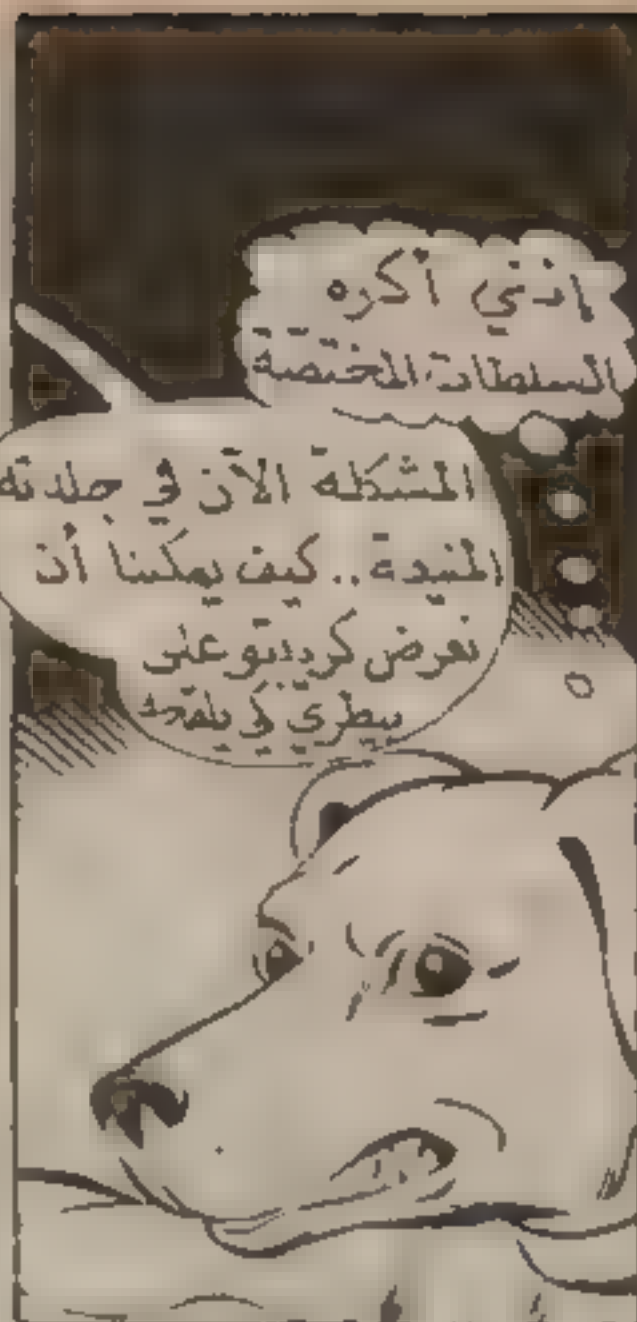 إنني أكره
السلطات المختصة
المشكلة الآن في جلدته
العنيدة .. كيف يمكننا أن
نعرض كرديتو على
بيطري كي يلقحه